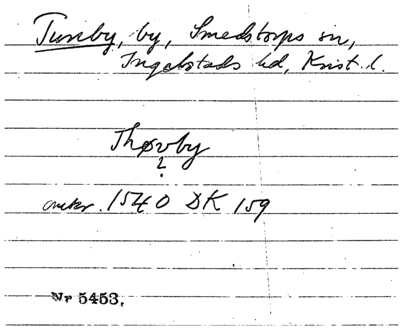 Tunby, by, Smedstorps sn,
Ingelstads hd, Krist. l.
Thovby
?
omkr. 1540 DK 159
Nr 5453.